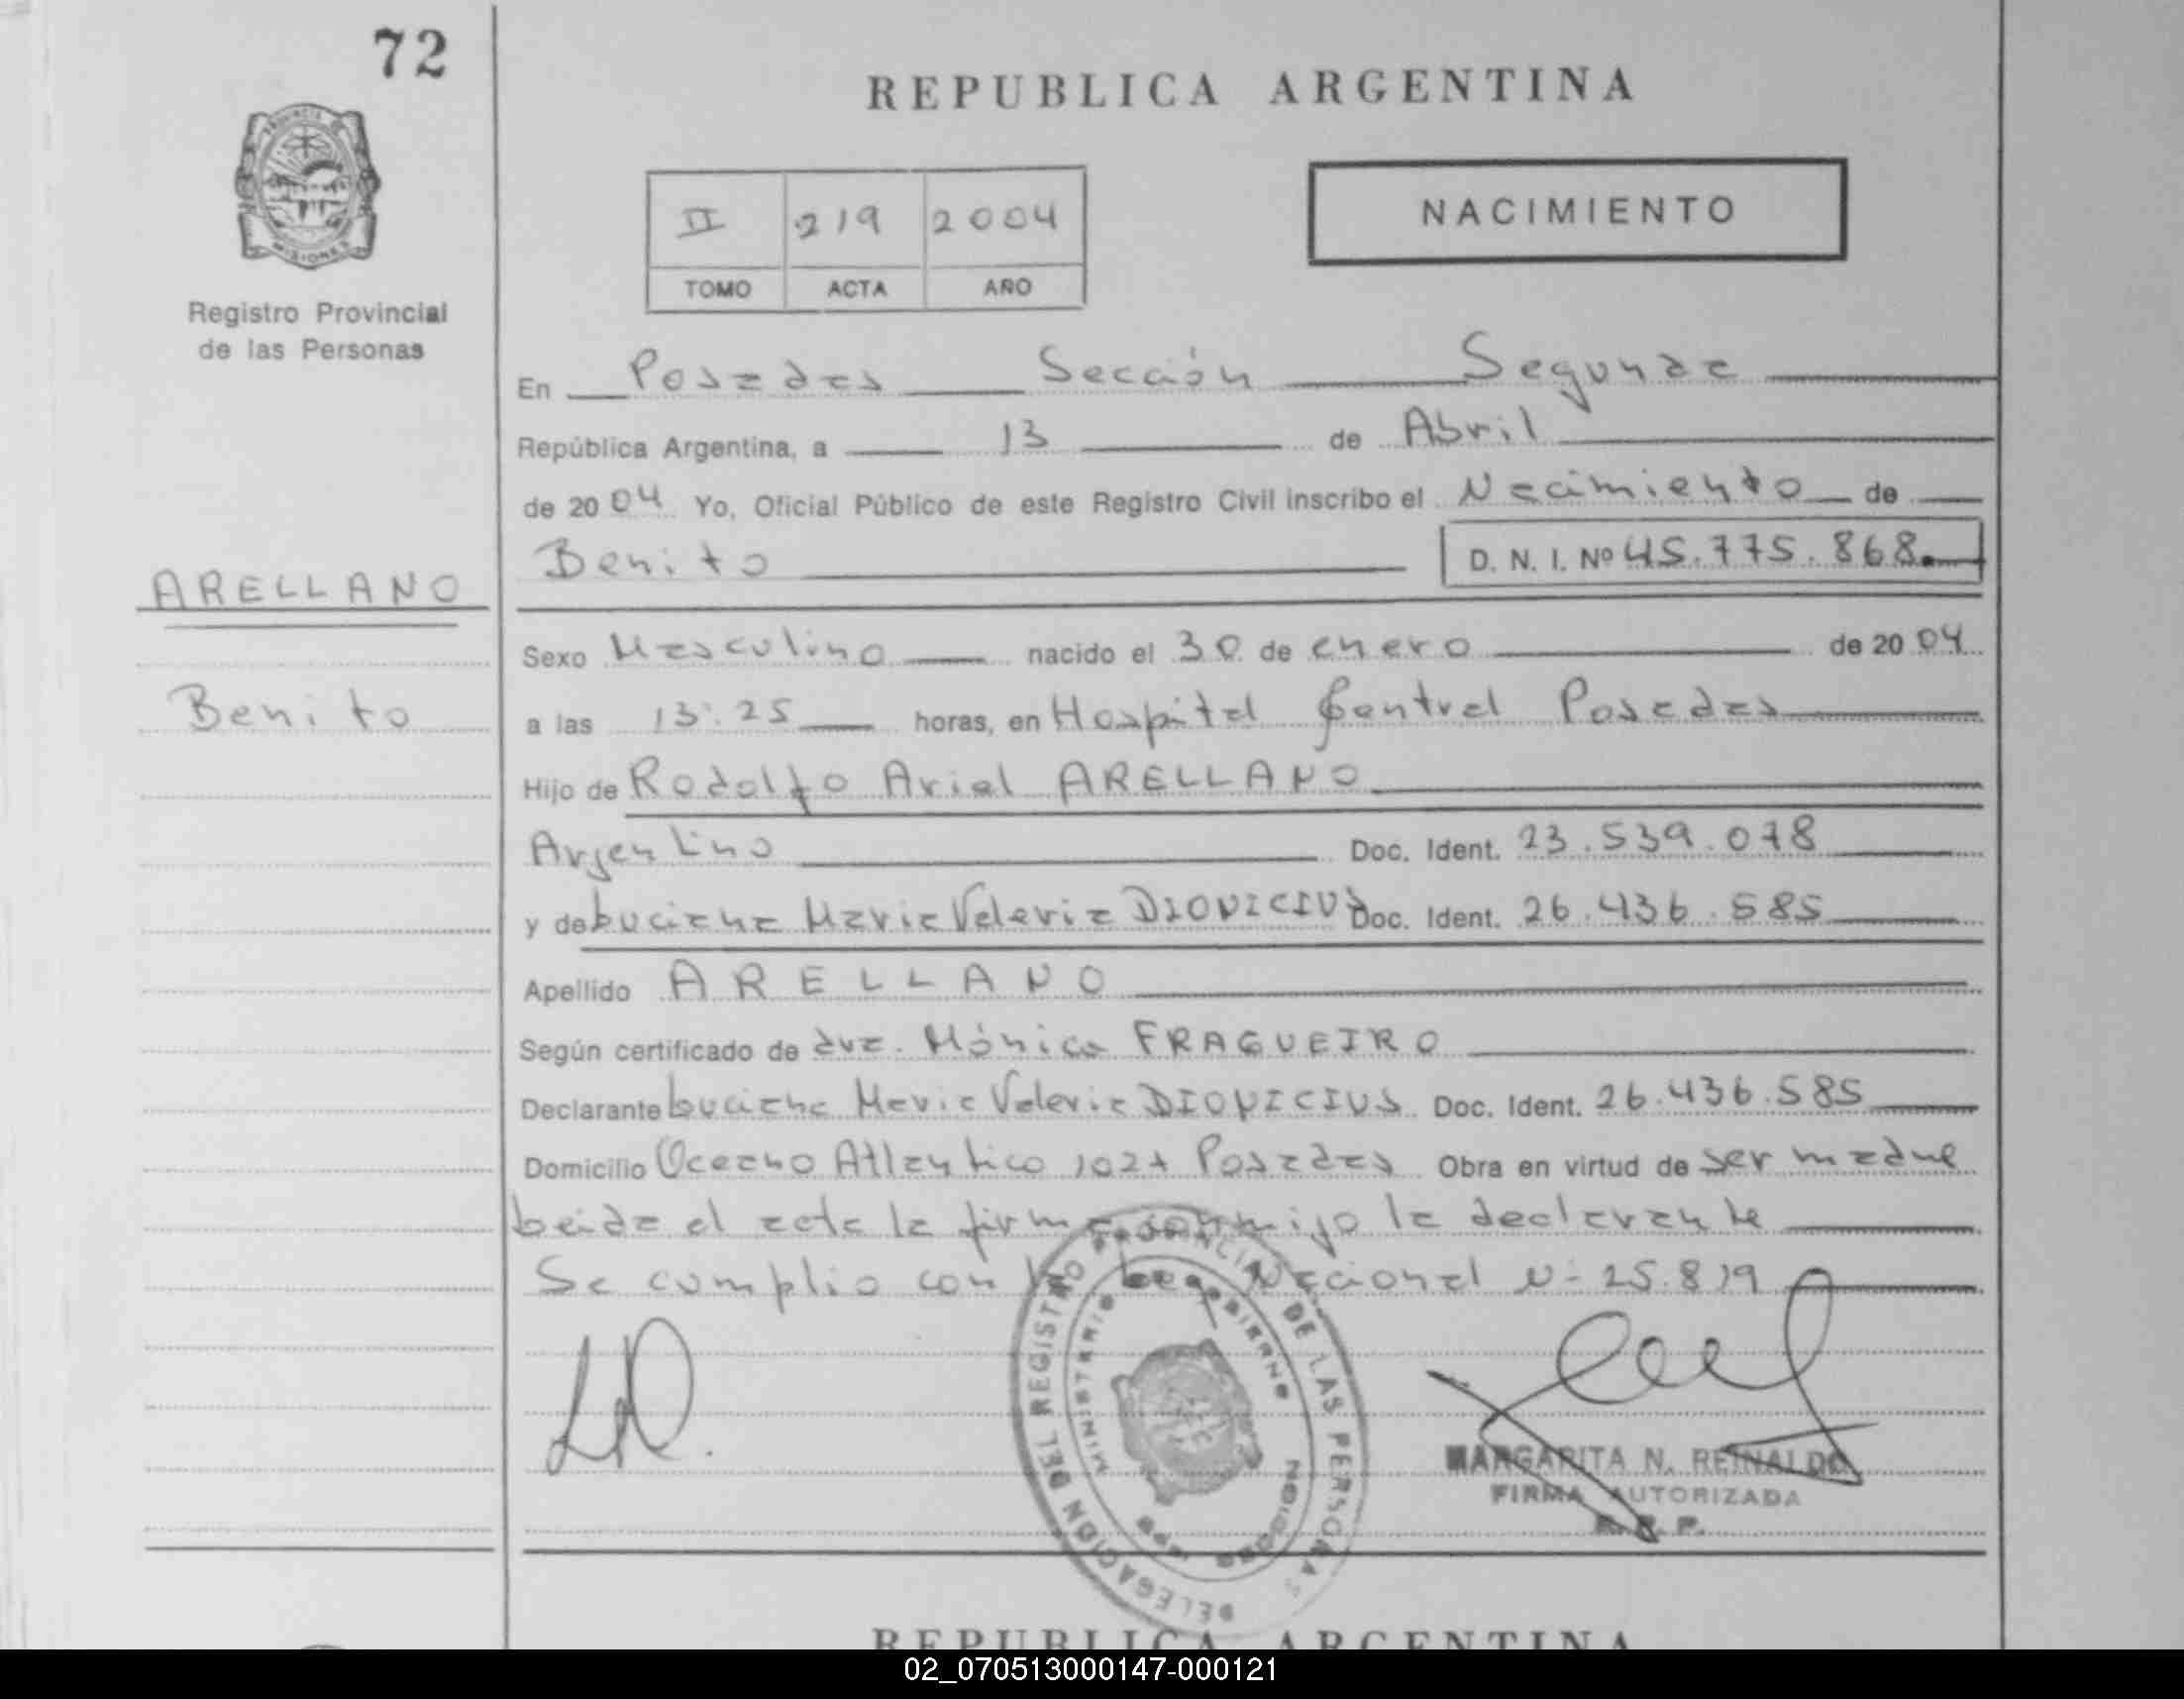 72
REPUBLICA ARGENTINA
PROVINCIA DE
MISIONES
Registro Provincial
de las Personas
II 219 2004
TOMO ACTA AÑO
NACIMIENTO
En Posadas Sección Segunda
República Argentina, a 13 de Abril
de 2004 Yo, Oficial Público de este Registro Civil inscribo el Nacimiento de
Benito D. N. I. Nº 45.775.868.
ARELLANO
Benito
Sexo Masculino nacido el 30 de enero de 2004
a las 13:25 horas, en Hospital Central Posadas
Hijo de Rodolfo Ariel ARELLANO
Argentino Doc. Ident. 23.539.078
y de Luciana Maria Valeria DIONICIUS Doc. Ident. 26.436.585
Apellido ARELLANO
Según certificado de dra. Mónica FRAGUEIRO
Declarante Luciana Maria Valeria DIONICIUS Doc. Ident. 26.436.585
Domicilio Oceano Atlantico Posadas Obra en virtud de ser madre
Leida el acta la firma conmigo la declarante
Se cumplio con la Ley Nacional N- 25.819
DELEGACION DEL REGISTRO PROVINCIAL DE LAS PERSONAS
MINISTERIO GOBIERNO
MARGARITA N. REINALDO
FIRMA AUTORIZADA
R. P. P.
REPUBLICA ARGENTINA
02_070513000147-000121